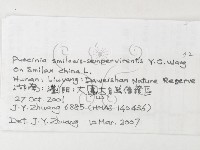 Puccinia smilacis-sempervirentis Y.C. Wang
On Smilax china L.
Hunan, Liuyang: Daweishan Nature Reserve
湖南: 浏阳: 大围山自然保护区
27 Oct 2001
J.Y. Zhuang 6885 (HMAS 140484)
Det. J.Y. Zhuang Mar. 2007